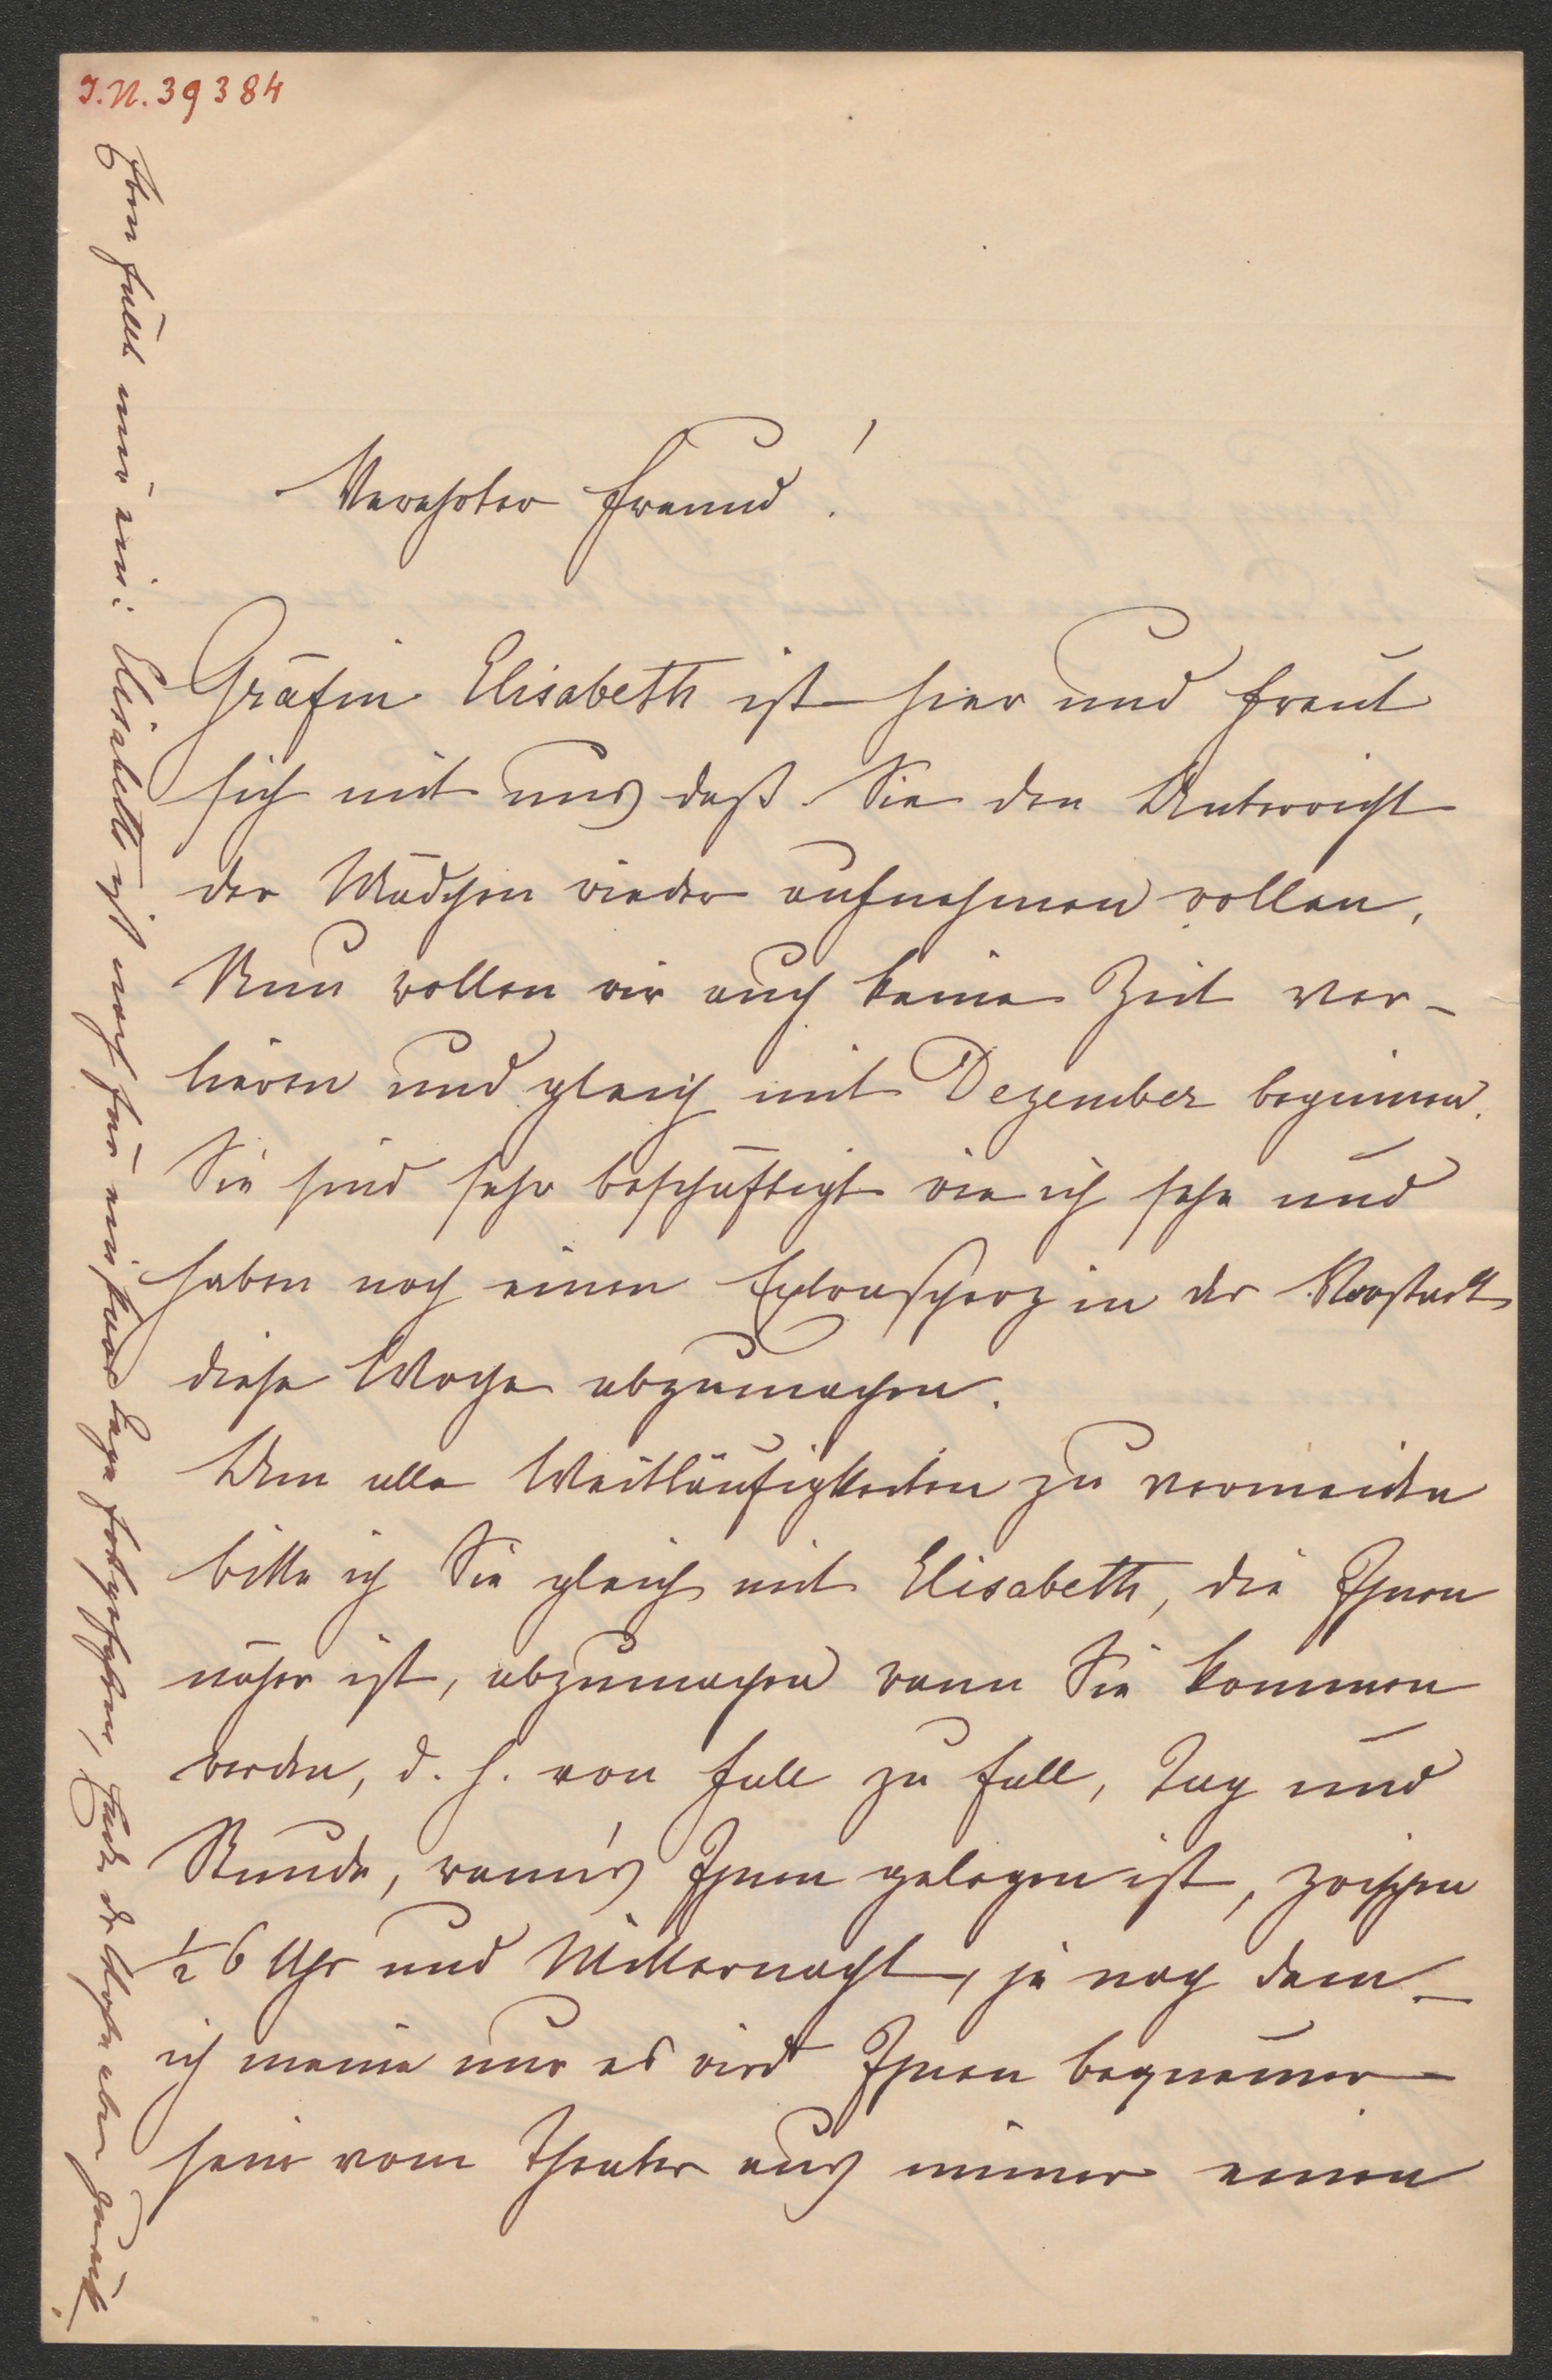 I.N. 39384
Verehrter Freund!
Gräfin Elisabeth ist hier und freut
sich mit uns daß Sie den Unterricht
der Mädchen wieder aufnehmen wollen.
Nun wollen wir auch keine Zeit ver-
lieren und gleich mit Dezember beginnen.
Sie sind sehr beschäftigt wie ich sehe und
haben noch einen Extrascherz in der Vorstadt
diese Woche abzumachen.
Um alle Weitläufigkeiten zu vermeiden
bitte ich Sie gleich mit Elisabeth, die Ihnen
näher ist, abzumachen wann Sie kommen
werden, d. h. von Fall zu Fall, Tag und
Stunde, wann's Ihnen gelegen ist, zwischen
½ 6 Uhr und Mitternacht, je nach dem –
ich meine nur es wird Ihnen bequemer
sein vom Theater aus immer einen
Eben fällt mir ein: Elisabeth ist noch für ein paar Tage fortgefahren, Ende der Woche aber zurück.